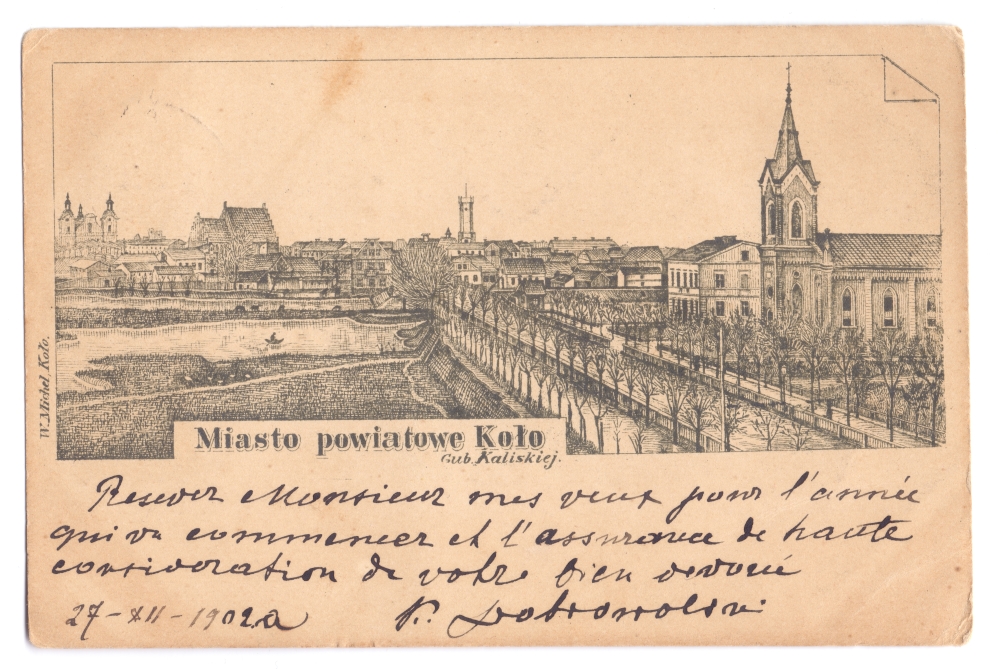 W. Michel. Koło.
Miasto powiatowe Koło
Gub. Kaliskiej.
Resever Monsieur mes veux pour l'année
qui va commencer et l'assurance de haute
consideration de votre bien devoué
27-XII-1902 a P. Dobrowolski